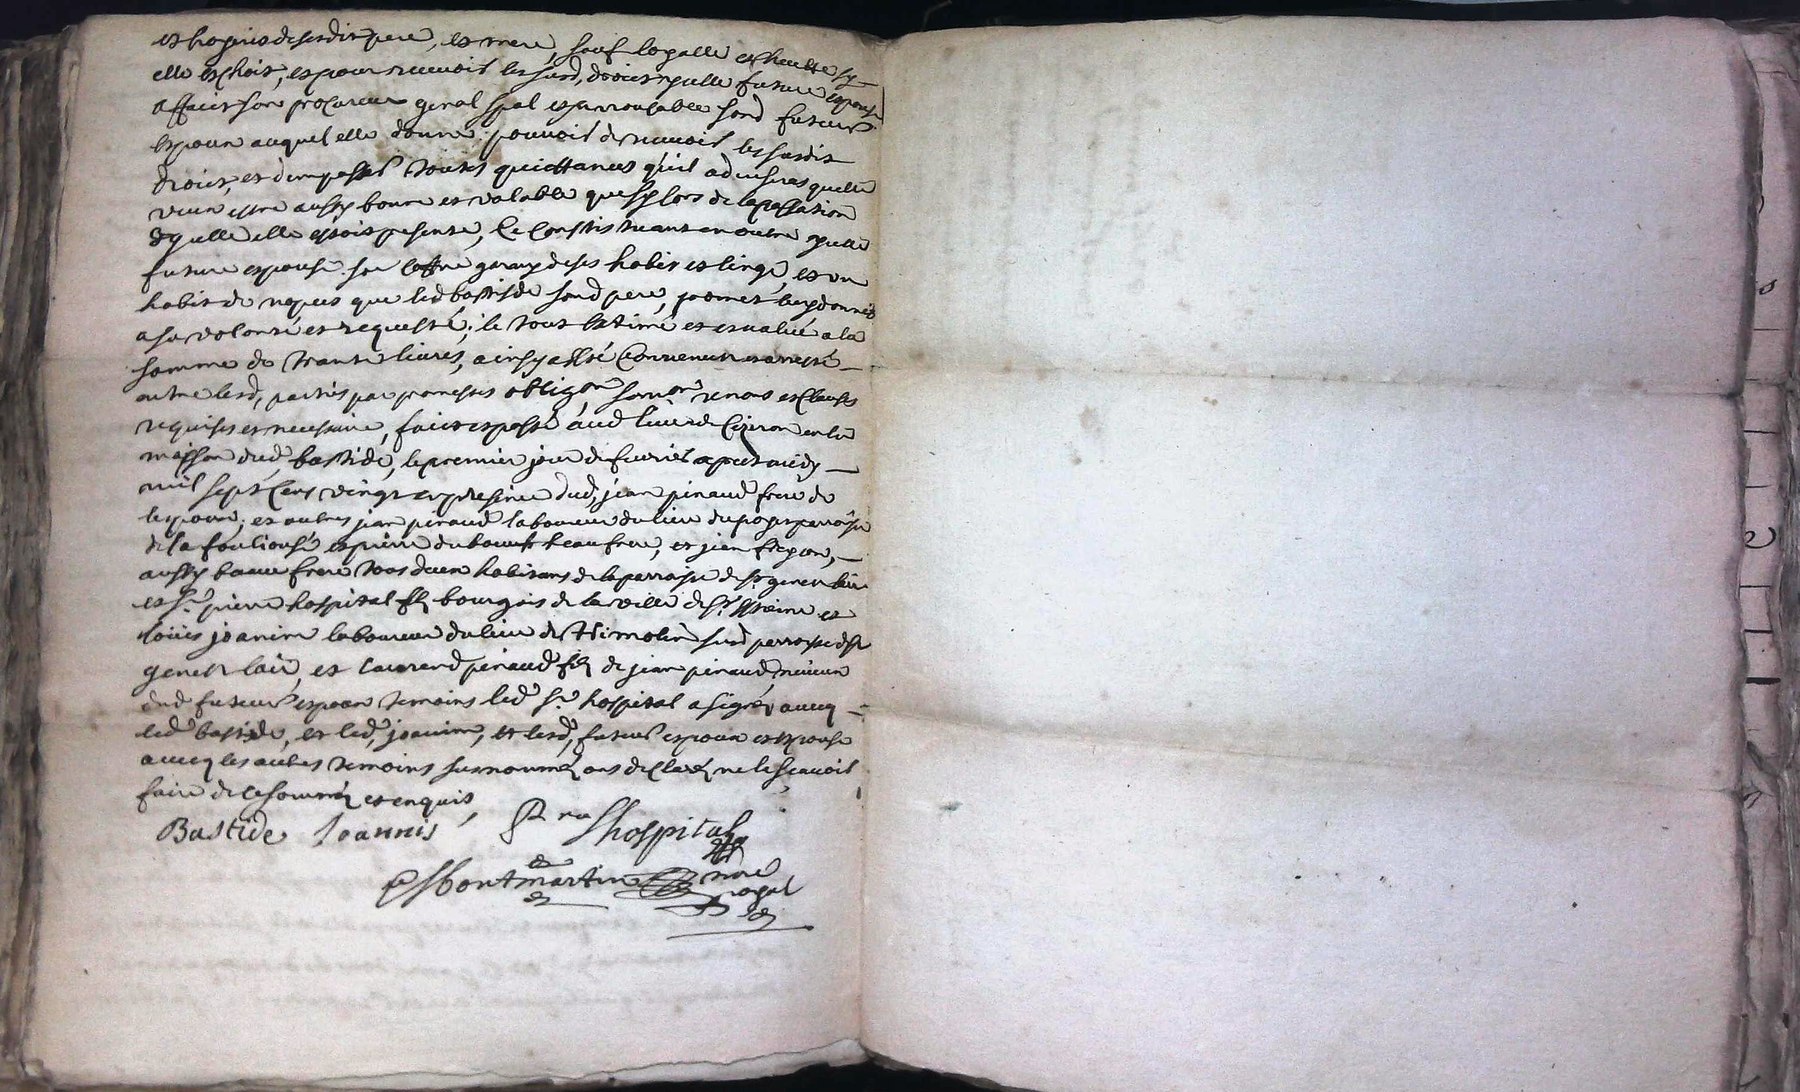 et hogeries de sesdit pere, et mere, sauf loyalle escheutte sy
elle eschoit, et pour recevoir lesusd, droits icelle future espouse
a fait son procureur genal spal et irrevocable sond futeur
espoux auquel elle donne pouvoir de recevoir les susdit
droits, et d'en passer toutes quictances qu'il advisera quelle
veut estre aussy bonne et valable que sy lors de la passation
d'icelle elle estoit presente, Ce Constituant en outre icelle
future espouse son coffre garny de ses habit et linge, et un
habit de nopces que led bastide sond pere, promet luy donner
a sa volonté et requeste; le tout estimé et evalué a la
somme de trante livres, ainsy a esté Convenu et aresté
entre lesd, parties par promesses obligon, soumon renons et Clauses
requises et necessaire, fait et passé aud lieu de Cizeron en la
maison dud, bastide, le premier jour de fevrier apret midy
mil sept Cens vingt en presence dud, jean pinaud frere de
lespoux, et autres jean pinaud laboureur du lieu du poyet parroisse
de la fouliouse et pierre dubouch beau frere, et jean frejon,
aussy beau frere tous deux habitans de la parroisse de st genest lair
et sr. pierre hospital fils bourgois de la ville de st. estienne et
loüis joanin laboureur du lieu de Himolin susd parroisse de st
genest lair, et laurend pinaud fils de jean pinaud, neveux
dud futeur espoux temoins led sr. hospital a signé, avecq
led bastide, et led, joanin, et lesd, futeur espoux et espouse
avecq les autres temoins susnommez ons declaré ne le scavoir
faire de ce sommez et enquis,
Bastide Joannis hospital
Montmartin nore
royal